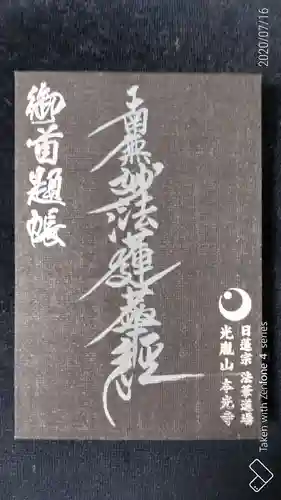 御首題帳
南無妙法蓮華経
日蓮宗 法華道場
光胤山 本光寺
2020/07/16
Taken with Zenfone 4 series